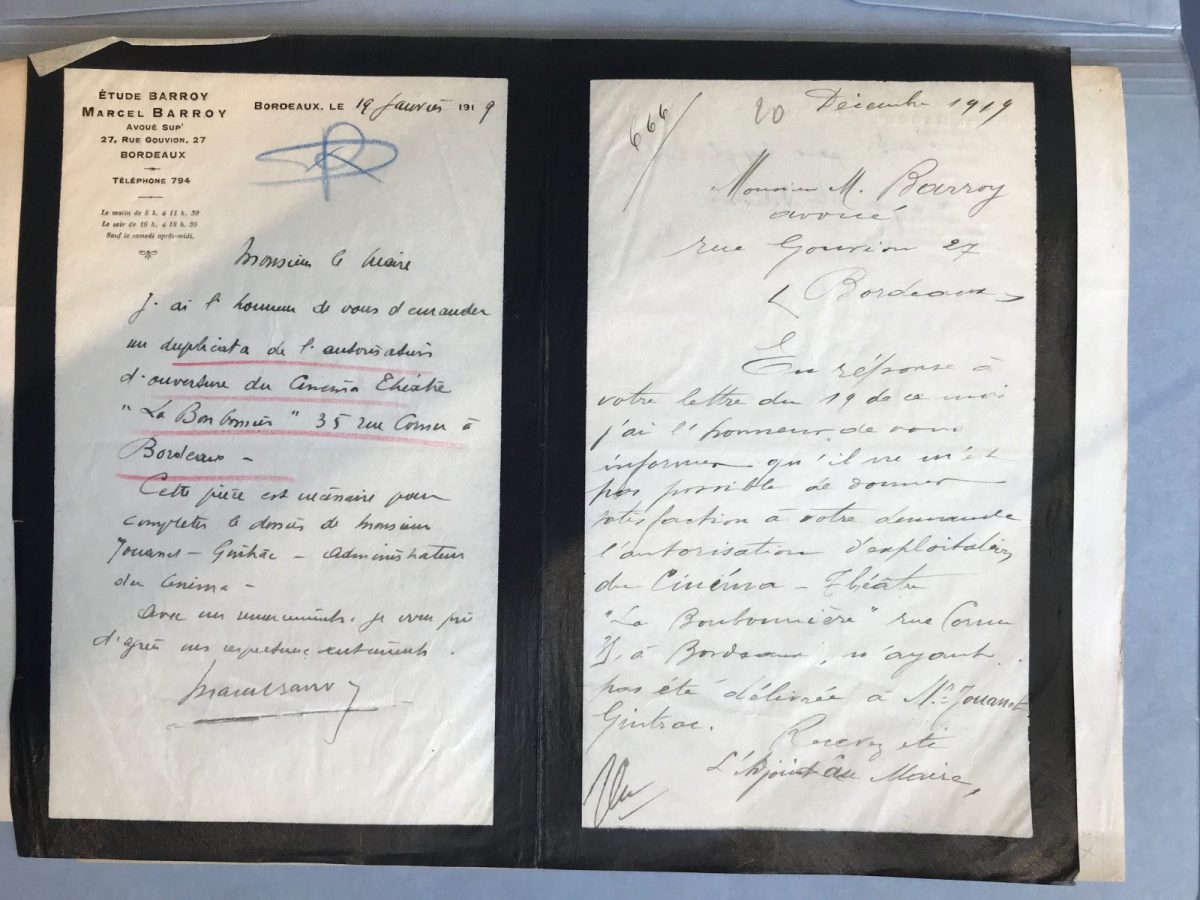 ÉTUDE BARROY
MARCEL BARROY
AVOUÉ SUPT
27, RUE GOUVION, 27
BORDEAUX
TÉLÉPHONE 794
Le matin de 8 h. à 11 h. 30
Le soir de 16 h. à 18 h. 30
Sauf le samedi après-midi.
BORDEAUX, LE 19 Janvier 1919
Monsieur le Maire
J'ai l'honneur de vous demander
un duplicata de l'autorisation
d'ouverture du Cinéma Théâtre
"La Bonbonnière" 35 rue Cornu à
Bordeaux -
Cette pièce est nécessaire pour
completer le dossier de Monsieur
Jouanet-Gintrac - administrateur
du Cinéma -
Avec mes remerciements, je vous prie
d'agréer mes respectueux sentiments.
666/
20 Décembre 1919
Monsieur M. Barroy
avoué
rue Gouvion 27
Bordeaux
En réponse à
votre lettre du 19 de ce mois
j'ai l'honneur de vous
informer qu'il ne m'est
pas possible de donner
satisfaction à votre demande
l'autorisation d'exploitation
du Cinéma-Théâtre
"La Bonbonnière" rue Cornu
à Bordeaux, n'ayant
pas été délivrée à Mr. Jouanet
Gintrac.
Recevez etc
L'Adjoint au Maire,